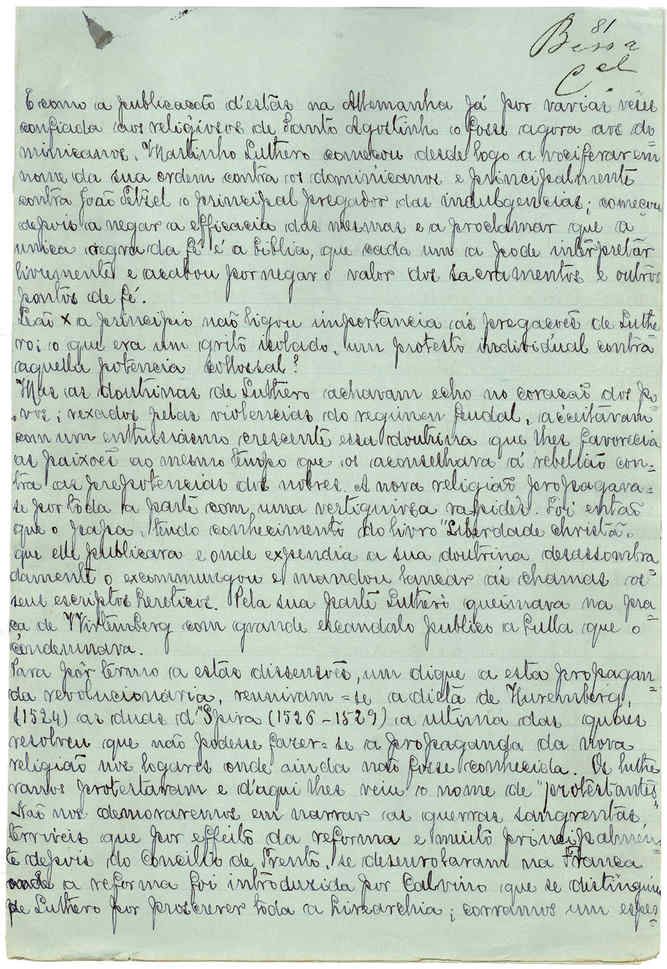 81
Bessa
Cel
E como a publicacão d'estas na Allemanha já por varias vêses
confiada aos religiosos de Santo Agostinho o fosse agora aos do=
minicanos, Martinho Luthero começou desde logo a vociferar em
nome da sua ordem contra os dominicanos e principalmente
contra João Tetzel o principal pregador das indulgencias; começou
depois a negar a efficacia das mesmas e a proclamar que a
unica regra da fé é a Biblia, que cada um a pode interpretar
livremente e acabou por negar o valor dos sacramentos e outros
pontos de fé.
Leão X a principio não ligou importancia ás pregacões de Luthe=
ro; o que era um grito isolado, um protesto individual contra
aquella potencia collossal?
Mas as doutrinas de Luthero achavam echo no coração dos po=
vos; vexados pelas violencias do regimen feudal, acceitavam
com um enthusiasmo crescente essa doutrina que lhes favorecia
as paixões ao mesmo tempo que os aconselhava á rebellião con=
tra as prepotencias dos nobres. A nova religião propagava=
se por toda a parte com uma vertiginosa rapidez. Foi então
que o papa, tendo conhecimento do livro "Liberdade christão"
que elle publicara e onde expendia a sua doutrina desassombra=
damente o excommungou e mandou lancar ás chamas os
seus escriptos hereticos. Pela sua parte Luthero queimava na pra=
ca de Wirtemberg com grande escandalo publico a bulla que o
condemnava.
Para pôr termo a estas dissensões, um dique a esta propagan=
da revolucionaria, reuniram=se a dieta de Nuremberg,
(1524) as duas d'Spira (1526-1529) a ultima das quaes
resolveu que não podesse fazer=se a propaganda da nova
religião nos logares onde ainda não fosse conhecida. Os luthe=
ranos protestaram e d'aqui lhes veiu o nome de "protestantes"
Não nos demoraremos em narrar as guerras sangrentas,
terriveis que por effeito da reforma e muito principalmen=
te depois do Concilio de Trento, se desenrolaram na França
onde a reforma foi introduzida por Calvino que se distinguiu
de Luthero por proscrever toda a hierarchia; corramos um espes=